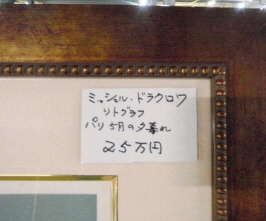 ミッシェル・ドラクロワ
リトグラフ
パリ 5月の夕暮れ
25万円